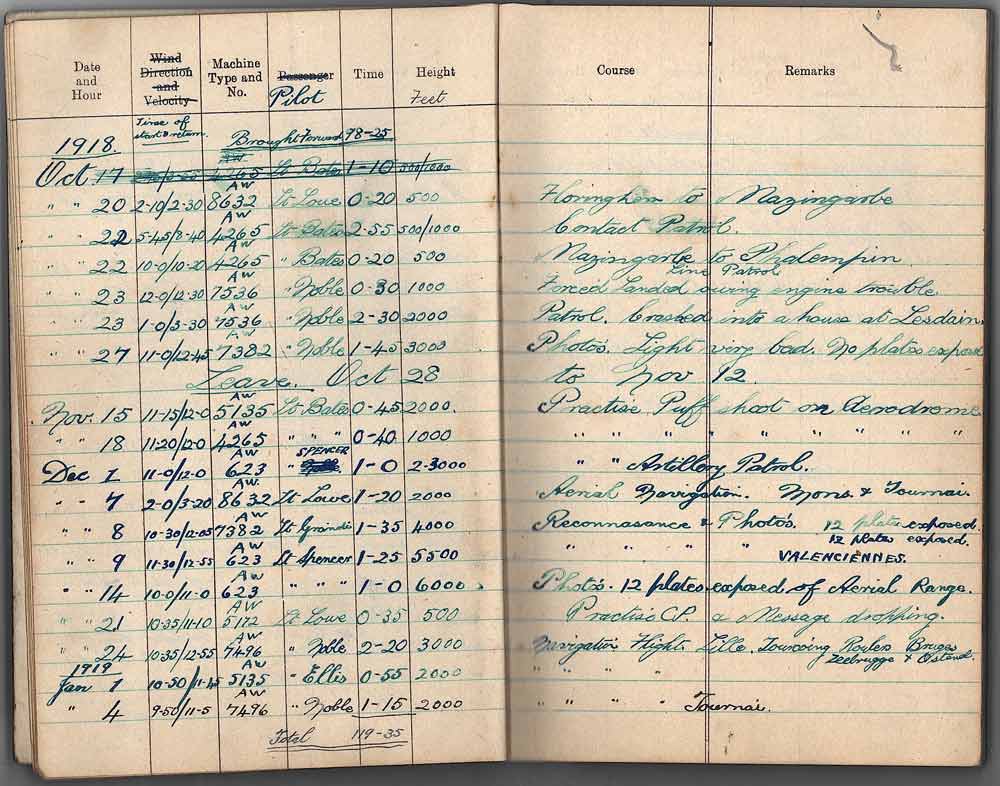 Date and Hour Wind Direction and Velocity Machine Type and No. Passenger Pilot Time Height Feet Course Remarks
Time of start & return.
1918. Brought Forward 98-25
Oct. 17 AW 4265 Lt Bates 1-10 500/1000
" " 20 2-10/2-30 AW 8632 Lt Lowe 0-20 500 Floringhem to Mazingarbe
" " 22 5-45/8-40 AW 4265 Lt Bates 2-55 500/1000 Contact Patrol.
" " 22 10-0/10-20 AW 4265 " Bates 0-20 500 Mazingarbe to Phalempin
" " 23 12-0/12-30 AW 7536 " Noble 0-30 1000 Line Patrol Forced Landed owing engine trouble.
" " 23 1-0/3-30 AW 7536 " Noble 2-30 2000 Patrol. Crashed into a house at Lesdain.
" " 27 11-0/12-45 AW 7382 " Noble 1-45 3000 Photo's. Light very bad. No plates exposed
Leave. Oct 28 to Nov 12.
Nov. 15 11-15/12-0 AW 5135 Lt Bates 0-45 2000. Practise Puff shoot on Aerodrome
" " 18 11-20/12-0 AW 4265 " " " 0-40 1000 " " " " " " "
Dec 1 11-0/12-0 AW 623 " SPENCER 1-0 2-3000 " " Artillery Patrol.
" " 7 2-0/3-20 AW. 8632 Lt Lowe 1-20 2000 Aerial Navigation. Mons. & Tournai.
" " 8 10-30/12-05 AW 7382 Lt Grandis 1-35 4000 Reconnasance & Photo's. 12 plates exposed.
" " 9 11-30/12-55 AW 623 Lt Spencer 1-25 5500 " " " " 12 plates exposed. VALENCIENNES.
" " 14 10-0/11-0 AW 623 " " " 1-0 6000 Photo's. 12 plates exposed of Aerial Range.
" " 21 10-35/11-10 AW 5172 Lt Lowe 0-35 500 Practise C.P. & Message dropping.
" " 24 10-35/12-55 AW 7496 " Noble 2-20 3000 Navigation Flight. Lille. Tourcoing Roulers Bruges Zeebrugge & Ostend.
1919
Jan 1 10-50/11-45 AW 5135 " Ellis 0-55 2000 " " "
" 4 9-50/11-5 AW 7496 " Noble 1-15 2000 " " " " Tournai.
Total 119-35